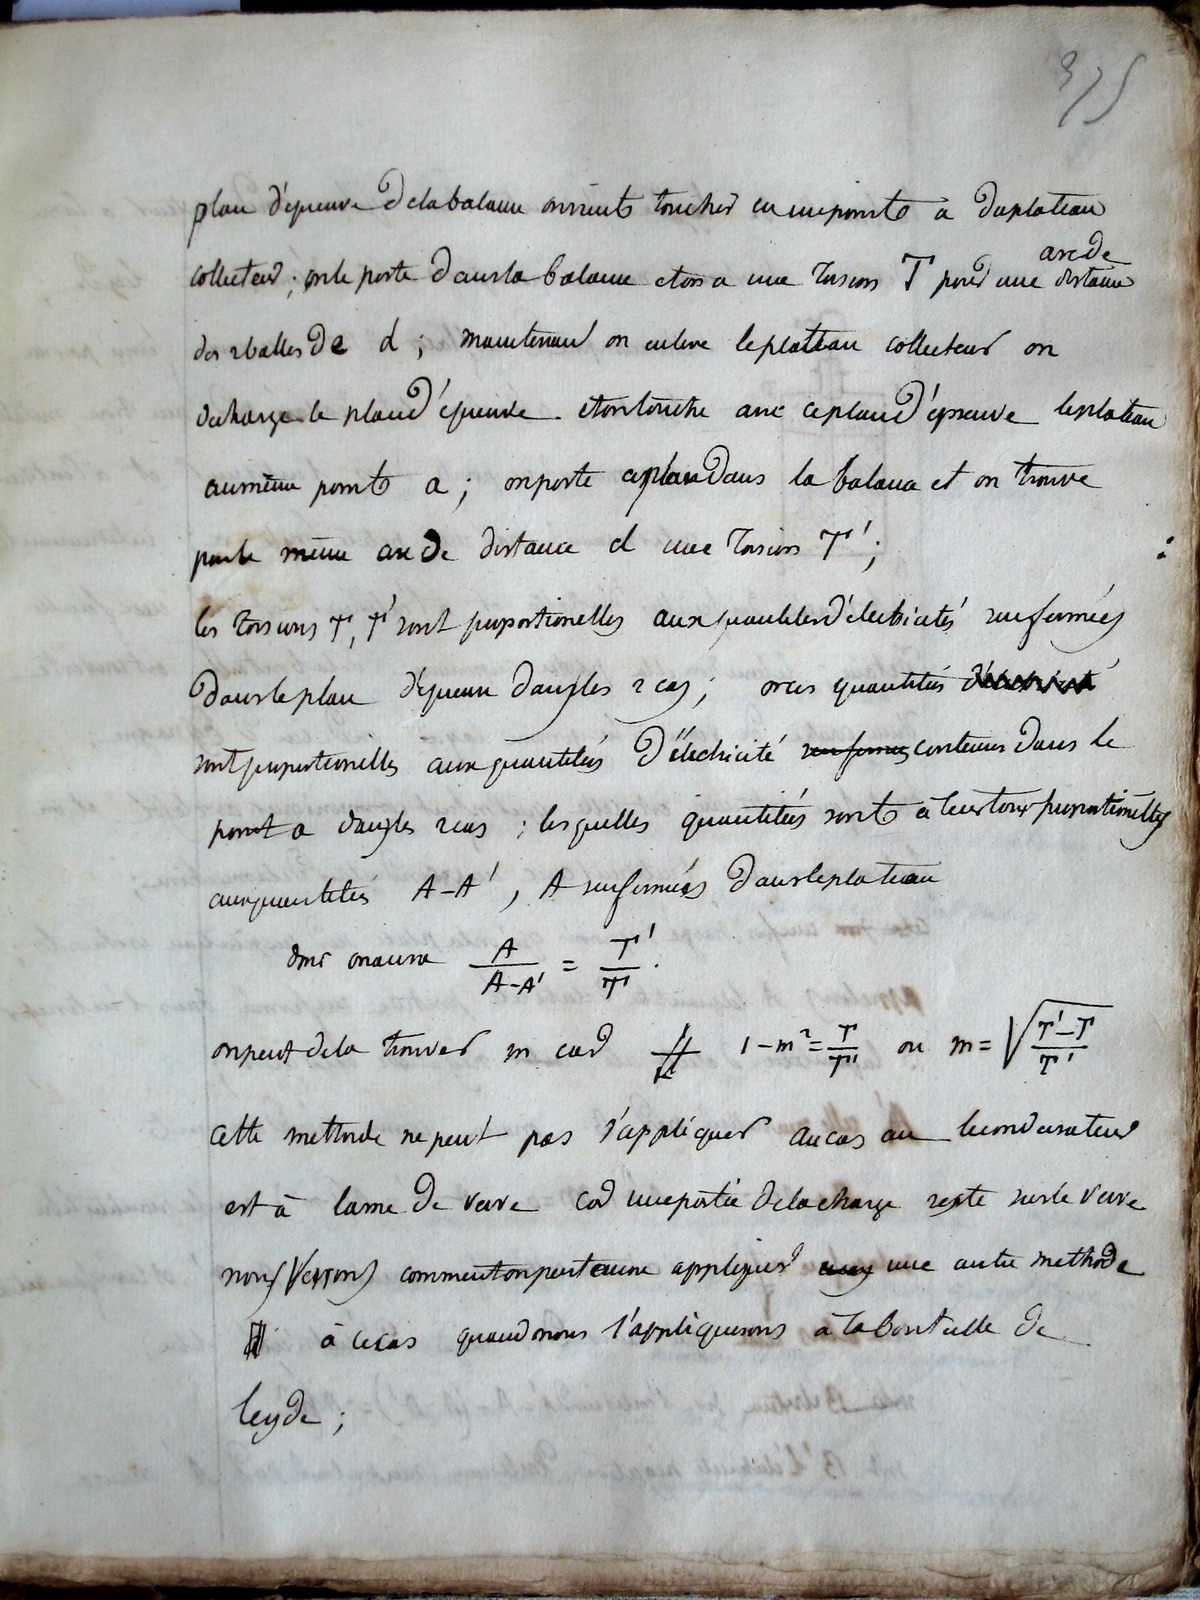 375
plan d'épreuve de la balance on vient toucher en un point a du plateau
collecteur ; on le porte dans la balance et on a une torsion T pour une arc de distance
des 2 balles de d ; maintenant on enleve le plateau collecteur on
decharge le plan d'épreuve et on touche avec ce plan d'épreuve le plateau
au même point a ; on porte ce plan dans la balance et on trouve
pour le même arc de distance d une torsion T' ;
les torsions T, T' sont proportionelles aux quantités d'électricités renfermées
dans le plan d'épreuve dans les 2 cas ; or ces quantités d'électricité
sont proportionelles aux quantités d'électricité renfermées contenues dans le
point a dans les 2 cas ; lesquelles quantités sont à leur tour proportionelles
aux quantités A-A' , A renfermées dans le plateau
donc on aura A/A-A' = T'/T .
on peut de la trouver m car 1-m² = T/T' ou m = √T'-T/T'
cette methode ne peut pas s'appliquer au cas au le condensateur
est à lame de verre car une partie de la charge reste sur le verre
nous verrons comment on peut encore appliquer une autre methode
à ce cas quand nous l'appliquerons à la bouteille de
leyde ;